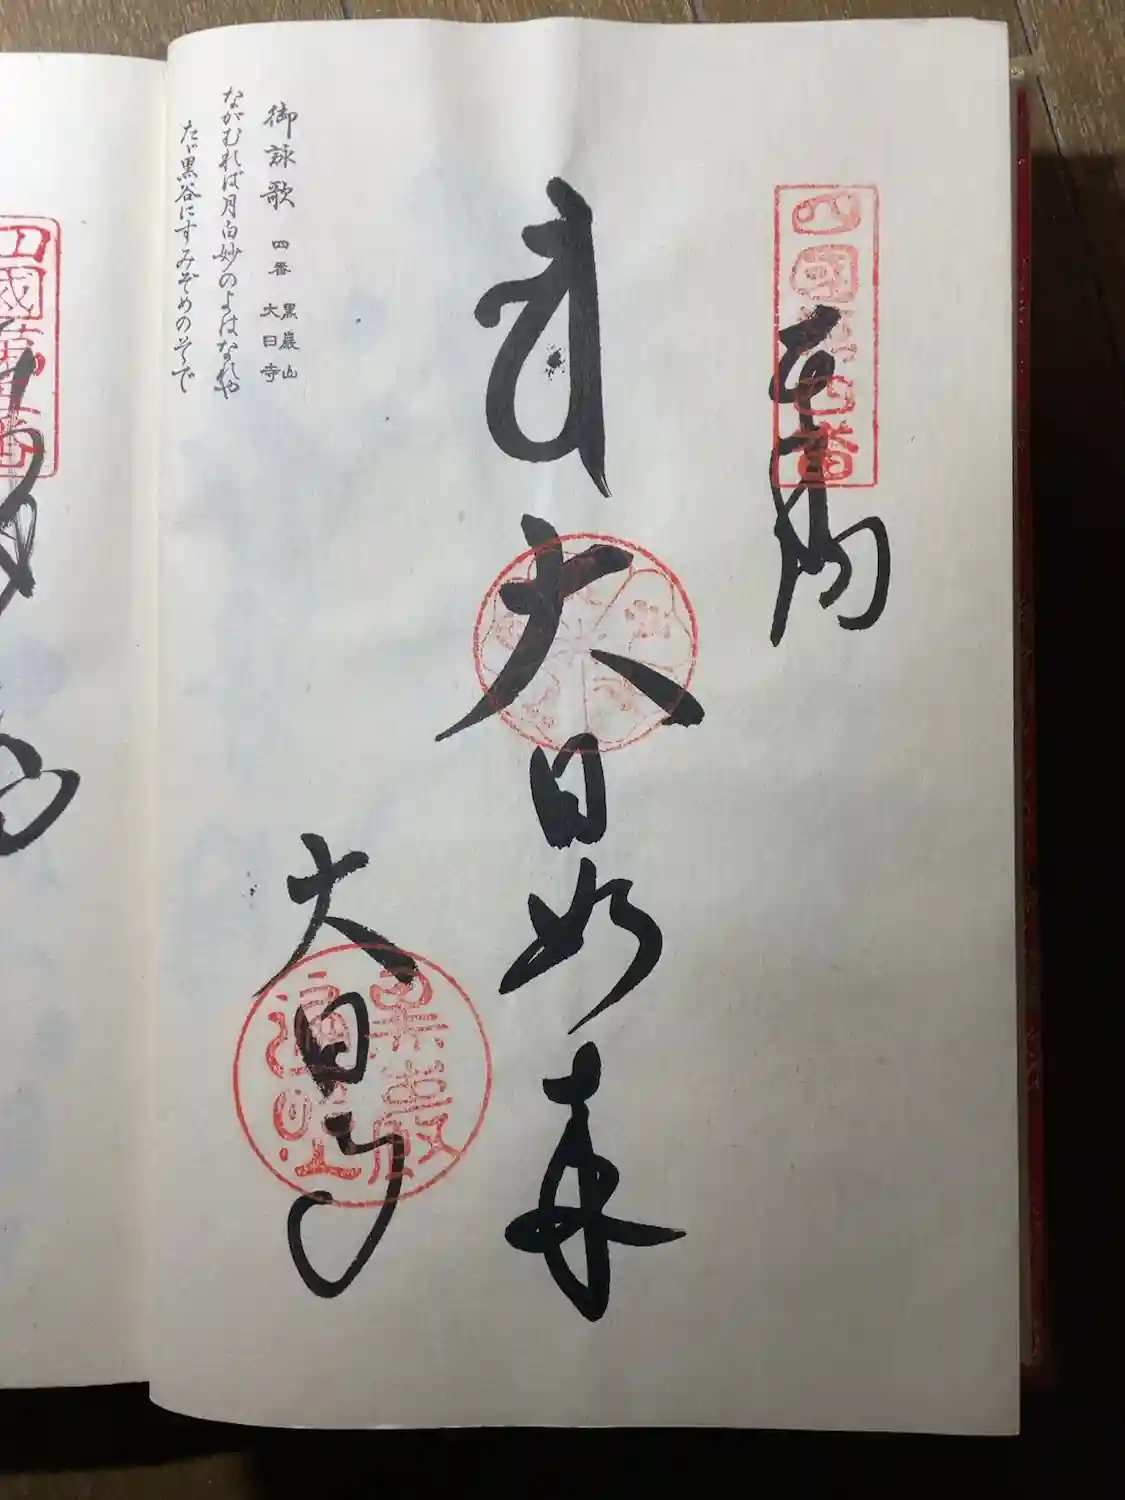 奉納
四國第四番
大日如来
大日寺
黒巖山
遍照
御詠歌 四番 黒巖山 大日寺
ながむれば月白妙のよはなれや
たゞ黒谷にすみぞめのそで